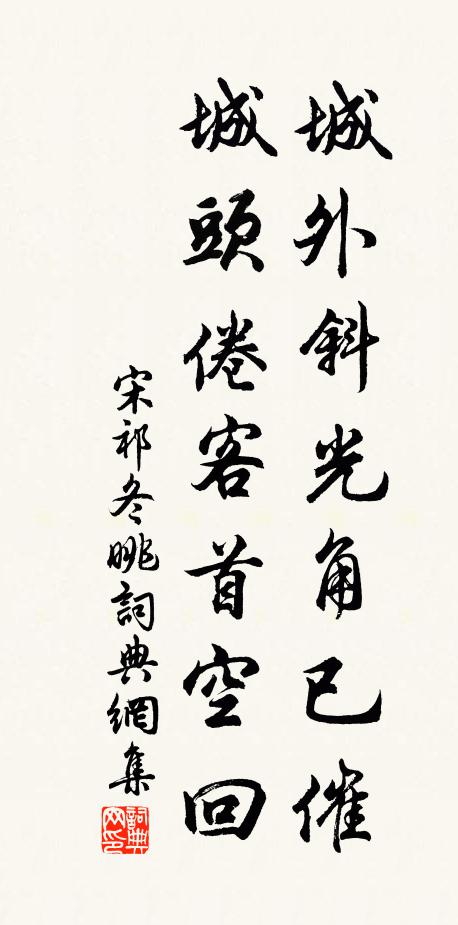 城外斜光角已催
城頭倦客首空回
宋祁冬眺詞典網集
詞典網印